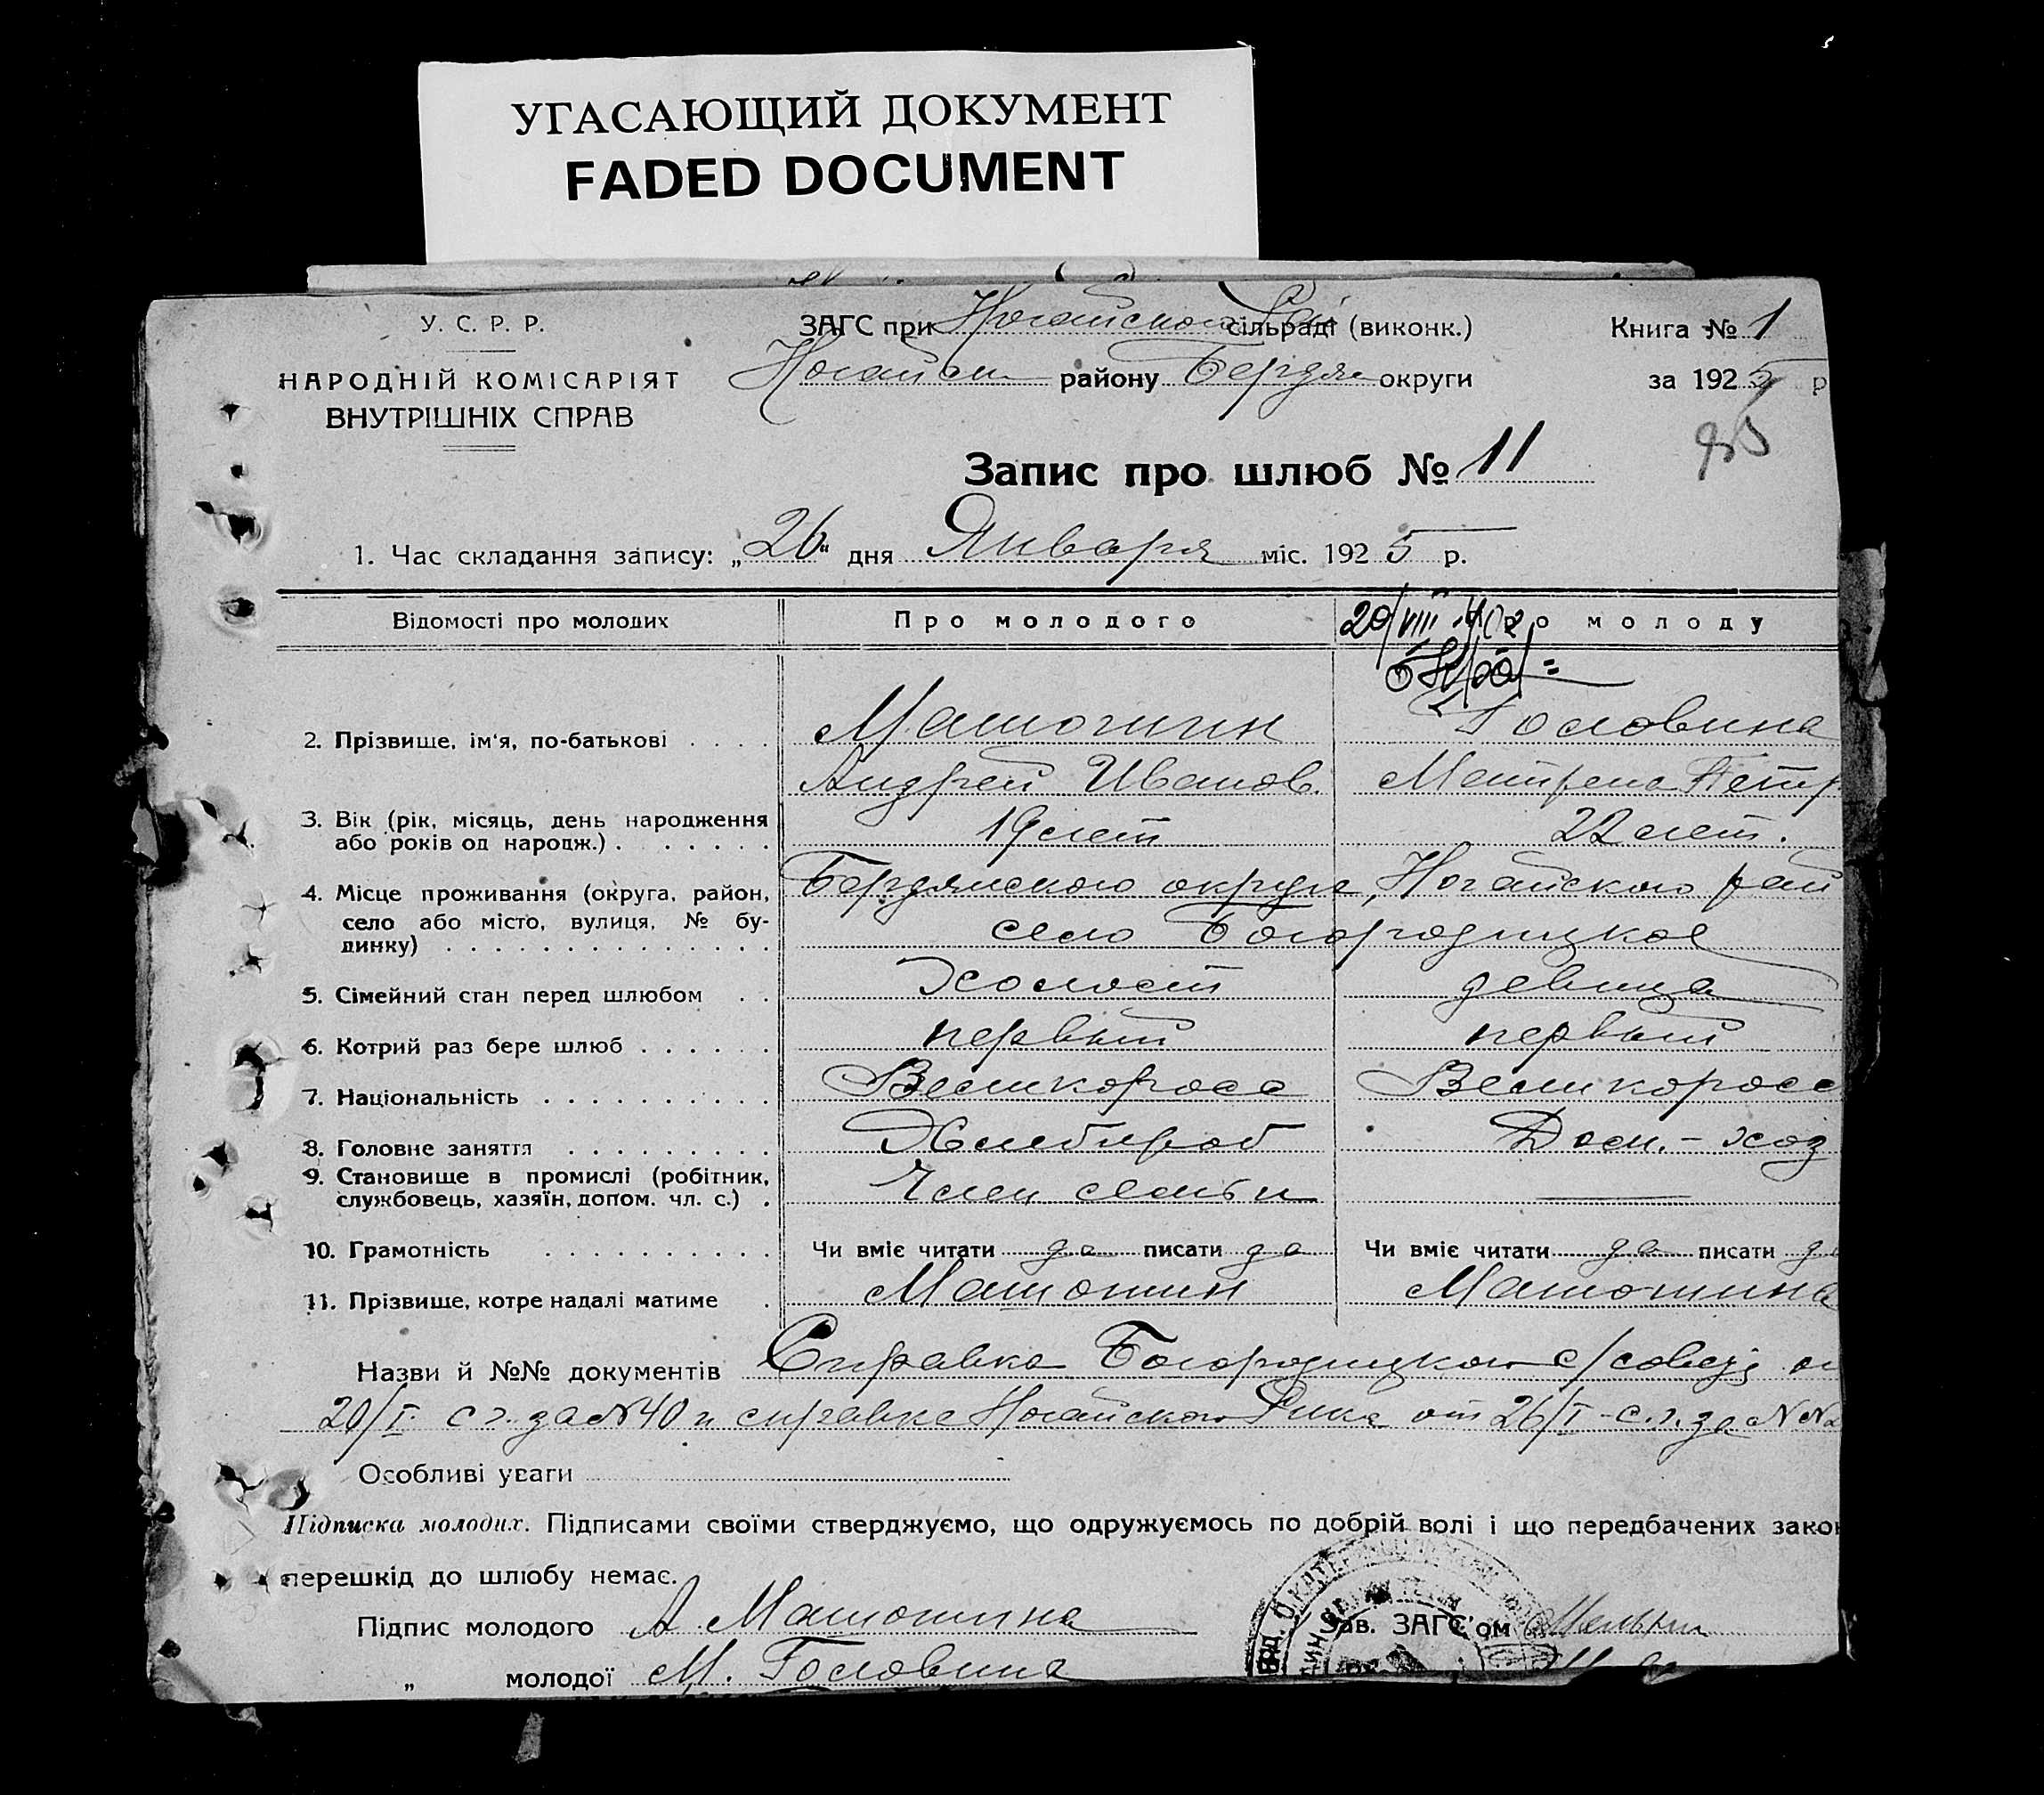 УГАСАЮЩИЙ ДОКУМЕНТ
FADED DOCUMENT
У. С. Р. Р.
НАРОДНІЙ КОМІСАРІЯТ
ВНУТРІШНІХ СПРАВ
ЗАГС при Ногайском сільраді (виконк.)
Ногайск району Бердян округи
Книга № 1
за 1925 р
Запис про шлюб № 11
1. Час складання запису: „26" дня Января міс. 1925 р.
Відомості про молодих Про молодого о молоду
2. Прізвище, ім'я, по-батькові . . . . Матюшин Головина
Андрей Иванов. Матрена Петр
3. Вік (рік, місяць, день народження
або років од народж.) . . . . . . . 19 лет 22 лет.
4. Місце проживання (округа, район, Бердянского округа, Ногайского рай
село або місто, вулиця, № бу-
динку) . . . . . . . . . . . . . . село Богородицкое
5. Сімейний стан перед шлюбом . . Холост девица
6. Котрий раз бере шлюб . . . . . . первый первый
7. Національність . . . . . . . . . . Великоросс Великоросс
8. Головне заняття . . . . . . . . . Хлебороб Дом. - хоз
9. Становище в промислі (робітник,
службовець, хазяїн, допом. чл. с.) . Член семьи —
10. Грамотність . . . . . . . . . . Чи вміє читати да писати да Чи вміє читати да писати да
11. Прізвище, котре надалі матиме . Матюшин Матюшина
Назви й №№ документів Справка Богородицкого с/совета
20/I с г. за № 40 и справка Ногайского Рика от 26/I - с. г. за №
Особливі уваги
Підписка молодих. Підписами своїми стверджуємо, що одружуємось по добрій волі і що передбачених закон
перешкід до шлюбу немає.
Підпис молодого А Матюшина
Зав. ЗАГС'ом
„ молодої М. Головина